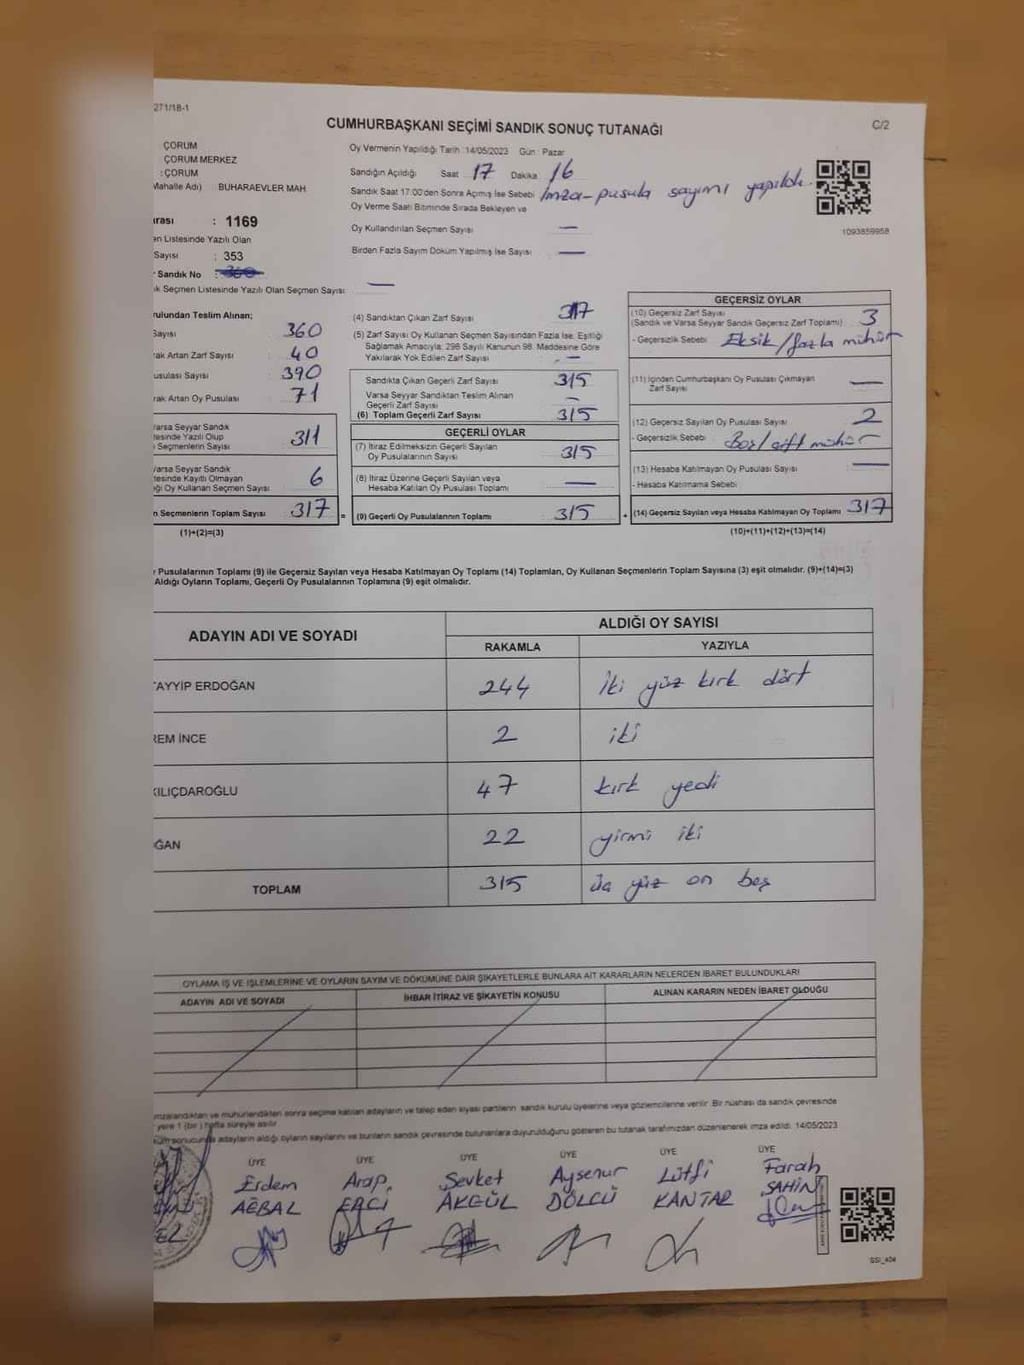 271/18-1
C/2
CUMHURBAŞKANI SEÇİMİ SANDIK SONUÇ TUTANAĞI
ÇORUM
ÇORUM MERKEZ
: ÇORUM
Mahalle Adı) : BUHARAEVLER MAH
ırası : 1169
an Listesinde Yazılı Olan
Sayısı : 353
r Sandık No :
k Seçmen Listesinde Yazılı Olan Seçmen Sayısı —
Oy Vermenin Yapıldığı Tarih :14/05/2023 Gün : Pazar
Sandığın Açıldığı Saat 17 Dakika 16
Sandık Saat 17:00'den Sonra Açılmış İse Sebebi İmza-pusula sayımı yapıldı.
Oy Verme Saati Bitiminde Sırada Bekleyen ve
Oy Kullandırılan Seçmen Sayısı —
Birden Fazla Sayım Döküm Yapılmış İse Sayısı —
1093859958
rulundan Teslim Alınan;
Sayısı : 360
rak Artan Zarf Sayısı : 40
usulası Sayısı : 390
rak Artan Oy Pusulası : 71
Varsa Seyyar Sandık
tesinde Yazılı Olup
n Seçmenlerin Sayısı 311
Varsa Seyyar Sandık
tesinde Kayıtlı Olmayan
ği Oy Kullanan Seçmen Sayısı 6
n Seçmenlerin Toplam Sayısı 317
(1)+(2)=(3)
(4) Sandıktan Çıkan Zarf Sayısı 317
(5) Zarf Sayısı Oy Kullanan Seçmen Sayısından Fazla İse, Eşitliği
Sağlamak Amacıyla; 298 Sayılı Kanunun 98. Maddesine Göre
Yakılarak Yok Edilen Zarf Sayısı —
Sandıkta Çıkan Geçerli Zarf Sayısı 315
Varsa Seyyar Sandıktan Teslim Alınan
Geçerli Zarf Sayısı —
(6) Toplam Geçerli Zarf Sayısı 315
GEÇERLİ OYLAR
(7) İtiraz Edilmeksizin Geçerli Sayılan
Oy Pusulalarının Sayısı 315
(8) İtiraz Üzerine Geçerli Sayılan veya
Hesaba Katılan Oy Pusulası Toplamı —
= (9) Geçerli Oy Pusulalarının Toplamı 315
GEÇERSİZ OYLAR
(10) Geçersiz Zarf Sayısı 3
(Sandık ve Varsa Seyyar Sandık Geçersiz Zarf Toplamı)
- Geçersizlik Sebebi Eksik/fazla mühür
(11) İçinden Cumhurbaşkanı Oy Pusulası Çıkmayan
Zarf Sayısı —
(12) Geçersiz Sayılan Oy Pusulası Sayısı 2
- Geçersizlik Sebebi Boş/çift mühür
(13) Hesaba Katılmayan Oy Pusulası Sayısı —
- Hesaba Katılmama Sebebi
+ (14) Geçersiz Sayılan veya Hesaba Katılmayan Oy Toplamı 317
(10)+(11)+(12)+(13)=(14)
r Pusulalarının Toplamı (9) ile Geçersiz Sayılan veya Hesaba Katılmayan Oy Toplamı (14) Toplamları, Oy Kullanan Seçmenlerin Toplam Sayısına (3) eşit olmalıdır. (9)+(14)=(3)
Aldığı Oyların Toplamı, Geçerli Oy Pusulalarının Toplamına (9) eşit olmalıdır.
ADAYIN ADI VE SOYADI
ALDIĞI OY SAYISI
RAKAMLA YAZIYLA
TAYYİP ERDOĞAN 244 İki yüz kırk dört
REM İNCE 2 iki
KILIÇDAROĞLU 47 kırk yedi
ĞAN 22 yirmi iki
TOPLAM 315 üç yüz on beş
OYLAMA İŞ VE İŞLEMLERİNE VE OYLARIN SAYIM VE DÖKÜMÜNE DAİR ŞİKAYETLERLE BUNLARA AİT KARARLARIN NELERDEN İBARET BULUNDUKLARI
ADAYIN ADI VE SOYADI İHBAR İTİRAZ VE ŞİKAYETİN KONUSU ALINAN KARARIN NEDEN İBARET OLDUĞU
imzalandıktan ve mühürlendikten sonra seçime katılan adayların ve talep eden siyasi partilerin sandık kurulu üyelerine veya gözlemcilerine verilir. Bir nüshası da sandık çevresinde
yere 1 (bir) hafta süreyle asılır.
adayların aldığı oyların sayılarını ve bunların sandık çevresinde bulunanlara duyurulduğunu gösteren bu tutanak tarafımızdan düzenlenerek imza edildi. 14/05/2023
ÜYE ÜYE ÜYE ÜYE ÜYE ÜYE
Erdem Arap Şevket Ayşenur Lütfi Farah
AĞBAL ERCİ AKGÜL DÖLCÜ KANTAR ŞAHİN
SSİ_404